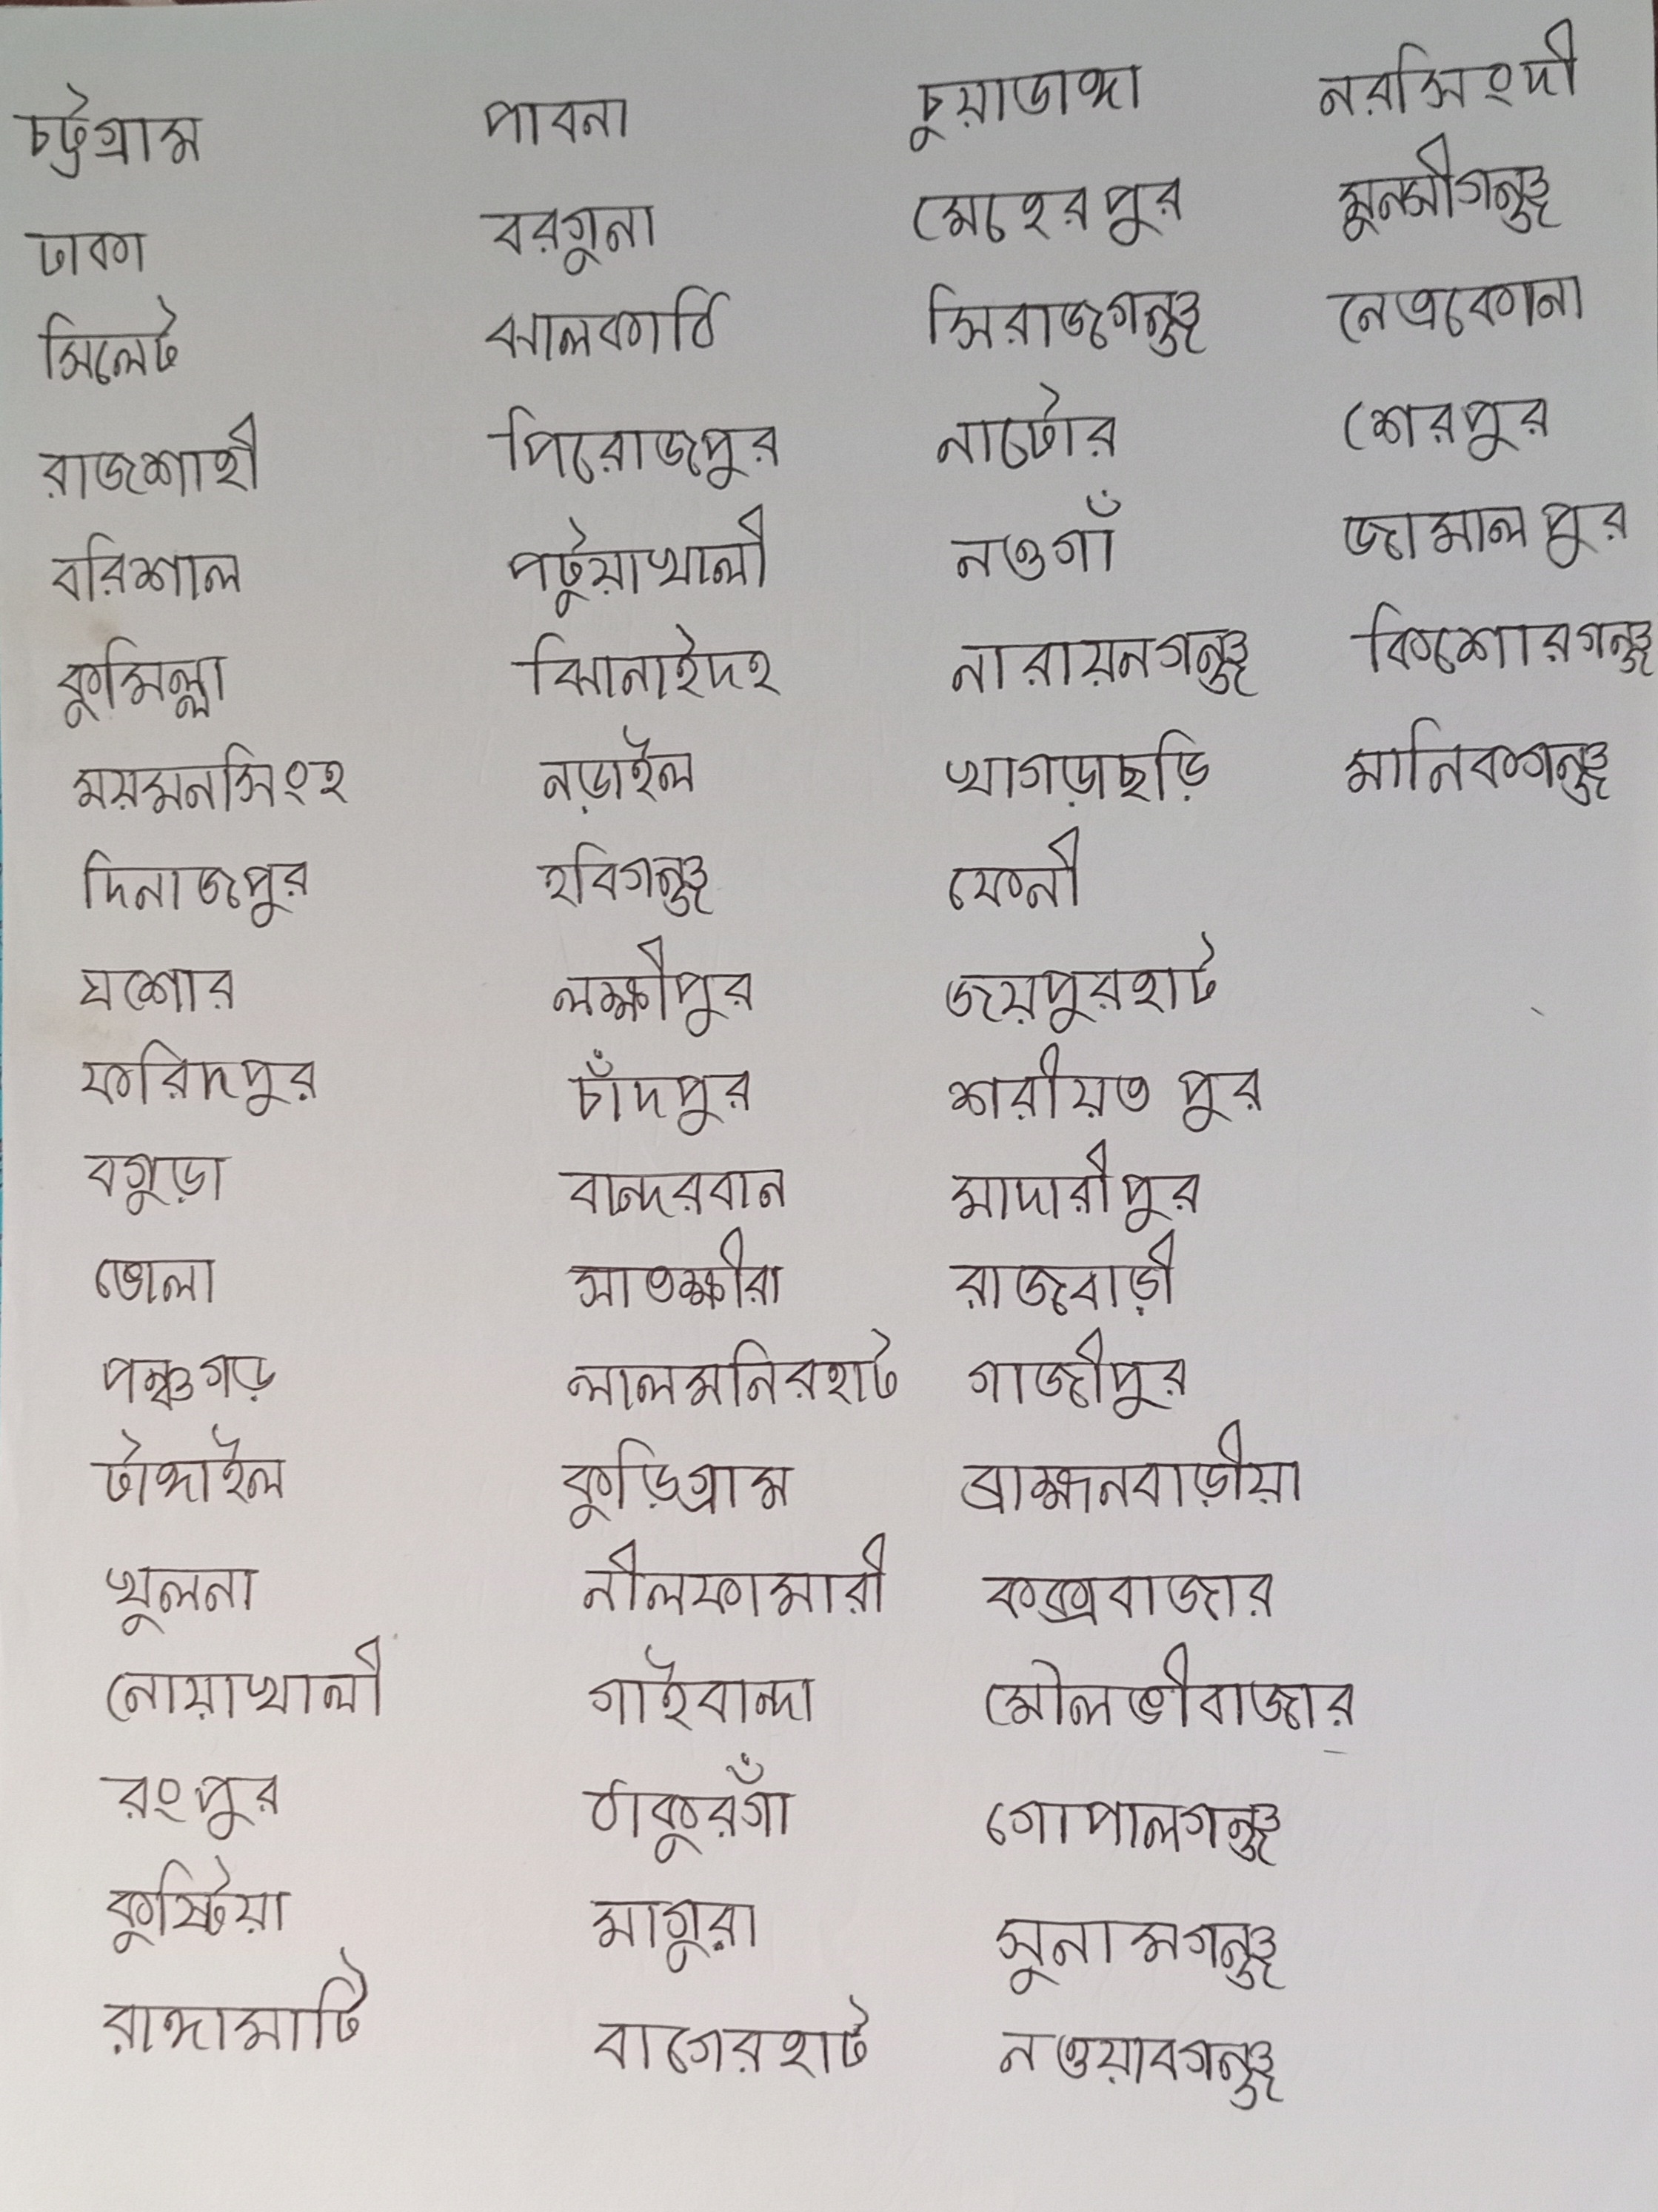 চট্টগ্রাম
ঢাকা
সিলেট
রাজশাহী
বরিশাল
কুমিল্লা
ময়মনসিংহ
দিনাজপুর
যশোর
ফরিদপুর
বগুড়া
ভোলা
পঞ্চগড়
টাঙ্গাইল
খুলনা
নোয়াখালী
রংপুর
কুষ্টিয়া
রাঙ্গামাটি
পাবনা
বরগুনা
ঝালকাঠি
পিরোজপুর
পটুয়াখালী
ঝিনাইদহ
নড়াইল
হবিগন্ঞ্জ
লক্ষীপুর
চাঁদপুর
বান্দরবান
সাতক্ষীরা
লালমনিরহাট
কুড়িগ্রাম
নীলফামারী
গাইবান্দা
ঠাকুরগাঁ
মাগুরা
বাগেরহাট
চুয়াডাঙ্গা
মেহেরপুর
সিরাজগন্ঞ্জ
নাটোর
নওগাঁ
নারায়নগন্ঞ্জ
খাগড়াছড়ি
ফেনী
জয়পুরহাট
শরীয়ত পুর
মাদারীপুর
রাজবাড়ী
গাজীপুর
ব্রাহ্মনবাড়ীয়া
কক্সবাজার
মৌলভীবাজার
গোপালগন্ঞ্জ
সুনামগন্ঞ্জ
নওয়াবগন্ঞ্জ
নরসিংদী
মুনসীগন্ঞ্জ
নেত্রকোনা
শেরপুর
জামালপুর
কিশোরগন্ঞ্জ
মানিকগন্ঞ্জ